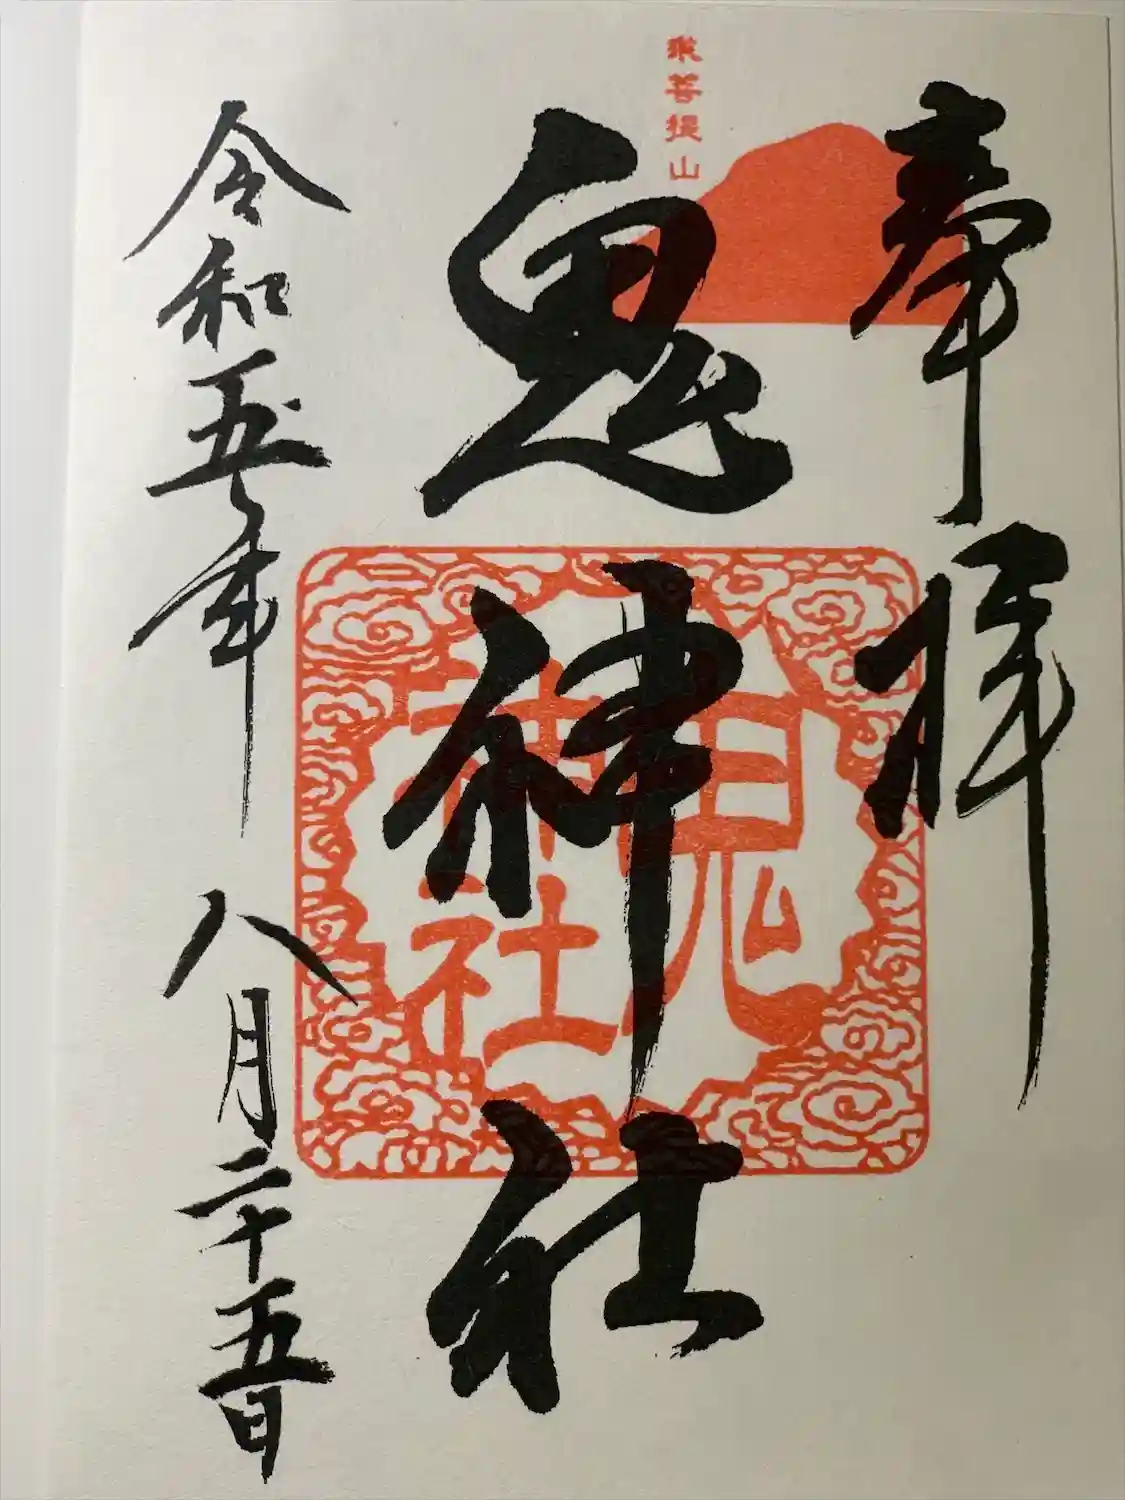 奉拝
菩提山
鬼神社
鬼
神社
令和五年 八月二十五日